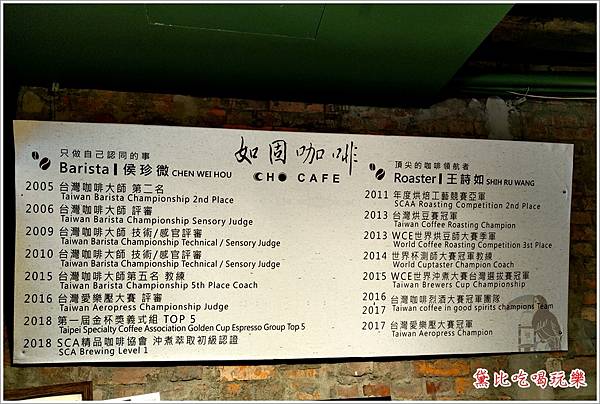 如固咖啡
CHO CAFE
只做自己認同的事
Barista 侯珍微 CHEN WEI HOU
2005 台灣咖啡大師 第二名
Taiwan Barista Championship 2nd Place
2006 台灣咖啡大師 評審
Taiwan Barista Championship Sensory Judge
2009 台灣咖啡大師 技術/感官評審
Taiwan Barista Championship Technical / Sensory Judge
2010 台灣咖啡大師 技術/感官評審
Taiwan Barista Championship Technical / Sensory Judge
2015 台灣咖啡大師第五名 教練
Taiwan Barista Championship 5th Place Coach
2016 台灣愛樂壓大賽 評審
Taiwan Aeropress Championship Judge
2018 第一屆金杯獎義式組 TOP 5
Taipei Specialty Coffee Association Golden Cup Espresso Group Top 5
2018 SCA精品咖啡協會 沖煮萃取初級認證
SCA Brewing Level 1
頂尖的咖啡領航者
Roaster 王詩如 SHIH RU WANG
2011 年度烘焙工藝競賽亞軍
SCAA Roasting Competition 2nd Place
2013 台灣烘豆賽冠軍
Taiwan Coffee Roasting Champion
2013 WCE世界烘豆師大賽季軍
World Coffee Roasting Competition 3st Place
2014 世界杯測師大賽冠軍教練
World Cuptaster Champion Coach
2015 WCE世界沖煮大賽台灣選拔賽冠軍
Taiwan Brewers Cup Championship
2016
2017 台灣咖啡烈酒大賽冠軍團隊
Taiwan coffee in good spirits champions Team
2017 台灣愛樂壓大賽冠軍
Taiwan Aeropress Champion
黛比吃喝玩樂